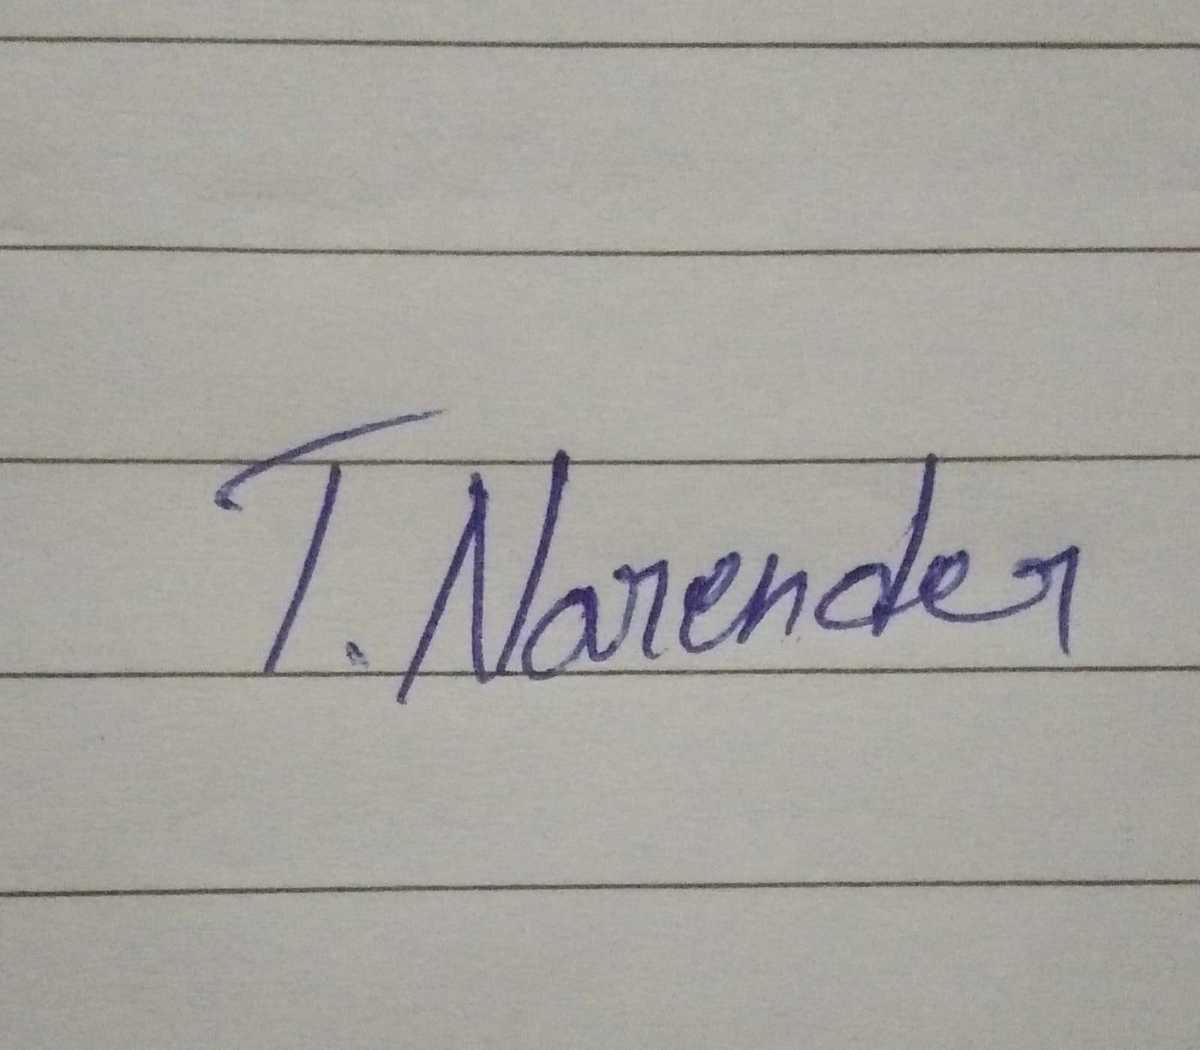 T. Narender